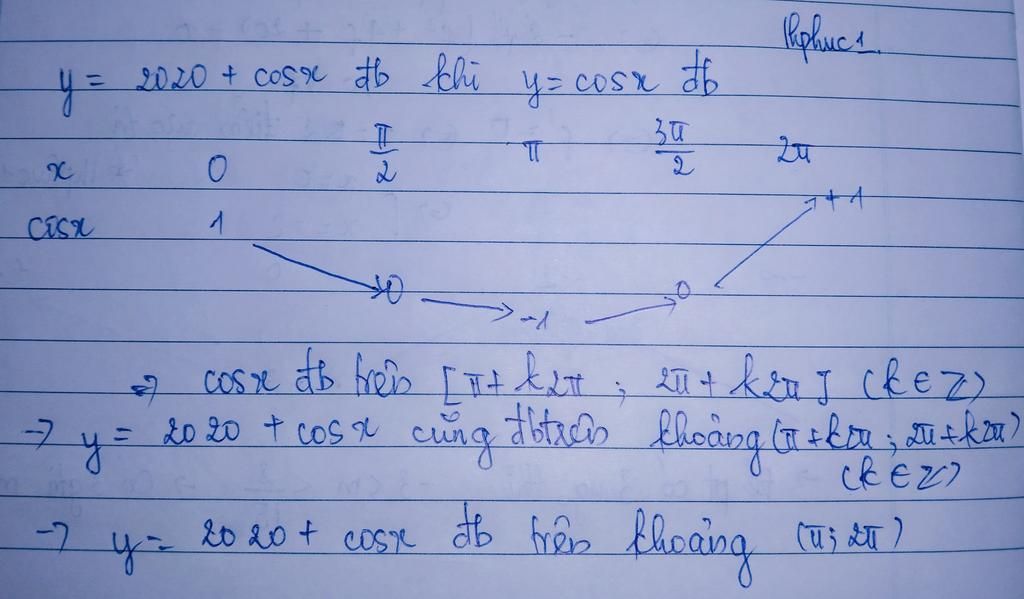 thphuc1.
y = 2020 + cosx đb khi y = cosx đb
x 0 π/2 π 3π/2 2π
cosx 1 0 -1 0 +1
=> cosx đb trên [π + k2π ; 2π + k2π] (k ∈ Z)
→ y = 2020 + cosx cũng đb trên khoảng (π + k2π ; 2π + k2π)
(k ∈ Z)
→ y = 2020 + cosx đb trên khoảng (π ; 2π)